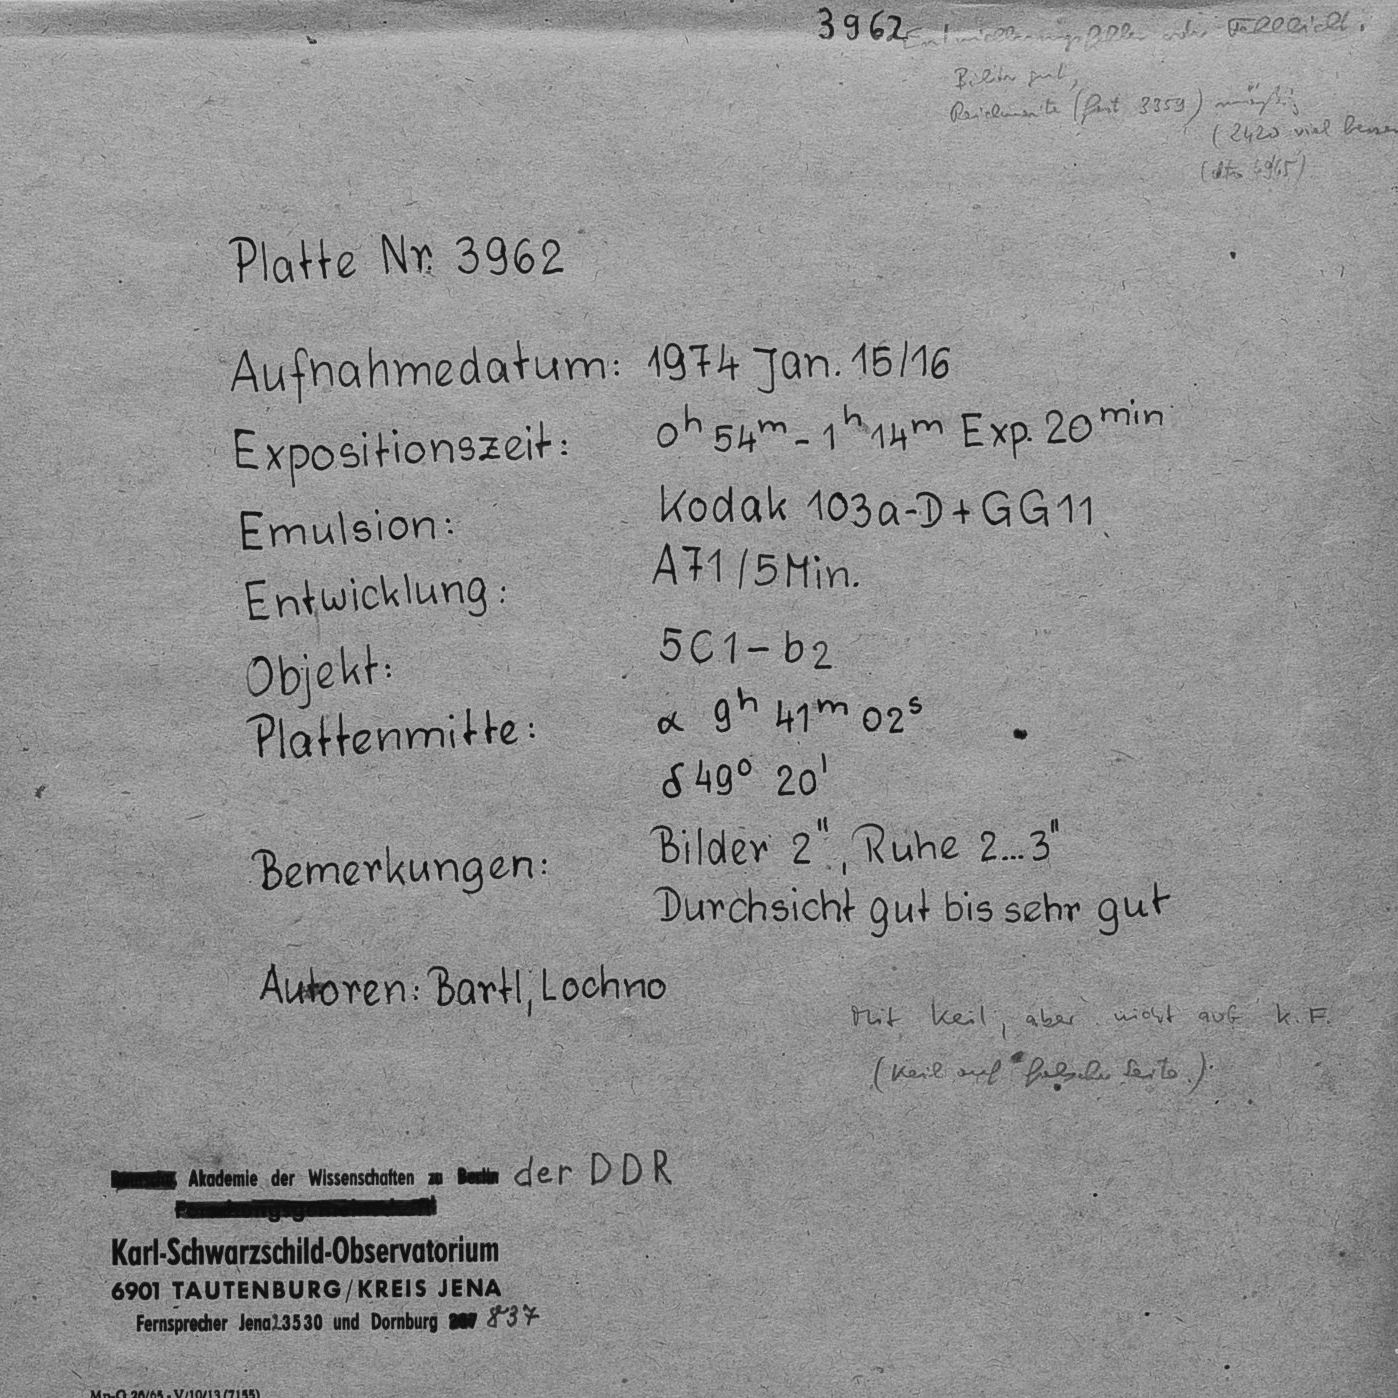 3962
Bilder gut,
Reichweite (fast 3359) mäßig
(2420 viel besser
(dto 4965)
Platte Nr. 3962
Aufnahmedatum: 1974 Jan. 15/16
Expositionszeit: 0h 54m - 1h 14m Exp. 20min
Emulsion: Kodak 103a-D + GG11
Entwicklung: A71/5Min.
Objekt: 5C1-b2
Plattenmitte: α 9h 41m 02s
δ 49° 20'
Bemerkungen: Bilder 2", Ruhe 2...3"
Durchsicht gut bis sehr gut
Autoren: Bartl, Lochno
Mit Keil, aber nicht auf K.F.
(Keil auf falscher Seite.)
Akademie der Wissenschaften zu Berlin der DDR
Karl-Schwarzschild-Observatorium
6901 TAUTENBURG/KREIS JENA
Fernsprecher Jena 23530 und Dornburg 837